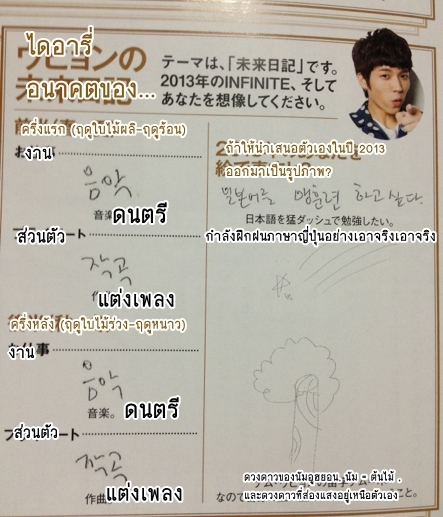 ウヒョンの
ไดอารี่
อนาคตของ...
テーマは、「未来日記」です。
2013年のINFINITE、そして
あなたを想像してください。
ครึ่งแรก (ฤดูใบไม้ผลิ-ฤดูร้อน)
งาน
음악
音楽
ดนตรี
ส่วนตัว
작곡
แต่งเพลง
ครึ่งหลัง (ฤดูใบไม้ร่วง-ฤดูหนาว)
งาน
음악
音楽。
ดนตรี
ส่วนตัว
작곡
作曲
แต่งเพลง
ถ้าให้นำเสนอตัวเองในปี 2013
ออกมาเป็นรูปภาพ?
일본어를 맹훈련 하고 싶다.
日本語を猛ダッシュで勉強したい。
กำลังฝึกฝนภาษาญี่ปุ่นอย่างเอาจริงเอาจริง
ดวงดาวของนัมอูฮยอน, นัม = ต้นไม้ ,
และดวงดาวที่ส่องแสงอยู่เหนือตัวเอง